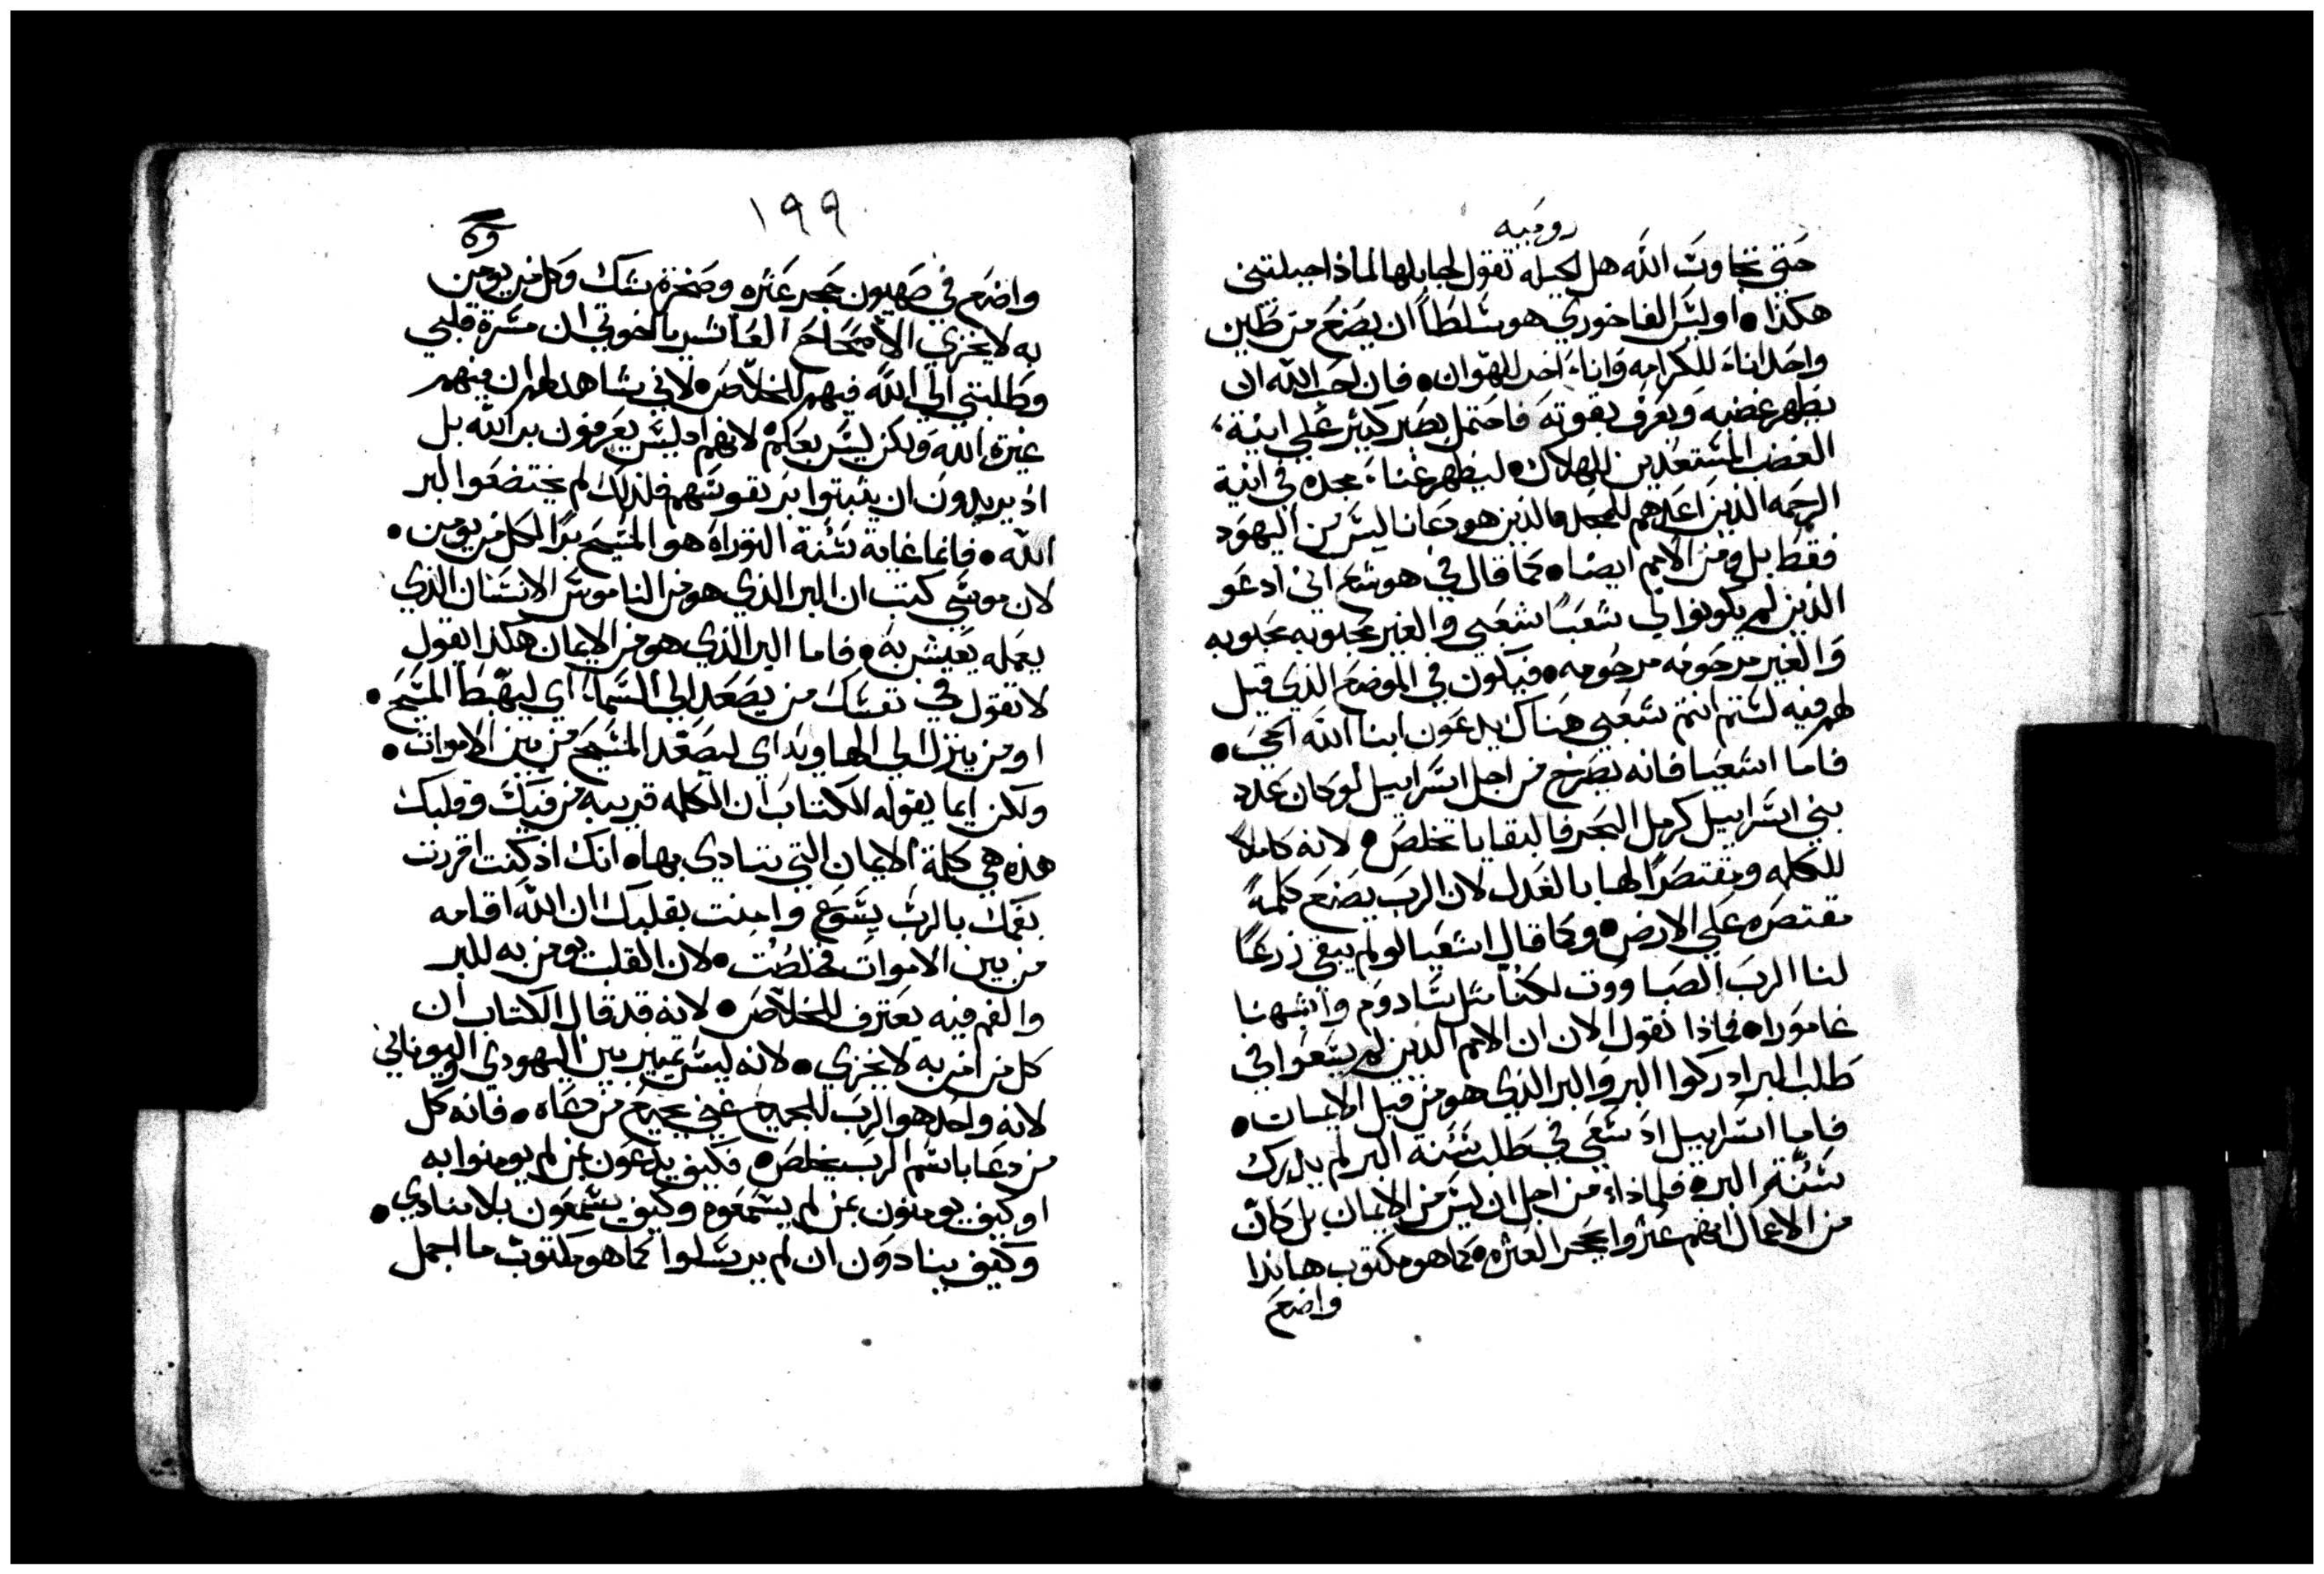 روميه
حتي تجاوب الله هل الجبله تقول لجابلها لماذا جبلتني
هكذا • اوليس الفاخوري هو سلطاً ان يصنع من طين
واحد اناء للكرامه واناء اخر للهوان • فان احب الله ان
يظهر غضبه ويعرف بقوته فاحتمل بصبر كثير علي انية
الغضب المستعدين للهلاك • ليظهر غناء مجده في انية
الرحمه الذين اعدهم للمجد • الذين هو دعانا ليس من اليهود
فقط بل ومن الامم ايضا • كما قال في هوشع اني ادعو
الذين لم يكونوا لي شعباً شعبي والغير محبوبه محبوبه
والغير مرحومه مرحومه • فيكون في الموضع الذي قيل
لهم فيه لستم انتم شعبي هناك يدعون ابنا الله الحي •
فاما اشعيا فانه يصرخ من اجل اسراييل لو كان عدد
بني اسراييل كرمل البحر فالبقايا تخلص • لانه كاملاً
للكلمه ومقتصراً لها بالعدل لان الرب يصنع كلمةً
مقتصره علي الارض • وكما قال اشعيا لو لم يبقي زرعاً
لنا الرب الصباووت لكنا مثل سادوم واشبهنا
غامورا • فماذا نقول الان ان الامم الذين لم يسعوا في
طلب البر ادركوا البر والبر الذي هو من قبل الايمان •
فاما اسراييل اذ سعي في طلب سُنة البر لم يدرك
سُنّة البر • فلماذا • من اجل ان ليس من الايمان بل كان
من الاعمال انهم عثروا بحجر العثره • كما هو مكتوب هانذا
واضع
١٩٩
واضع في صهيون حجر عثره وصخرة شك وكل من يومن
به لا يخزي الاصحاح العاشر يا اخوتي ان مسرة قلبي
وطلبتي الي الله فيهم للخلاص • لاني شاهد لهم ان فيهم
غيرة الله ولكن ليس بعلم لانهم اذ ليس يعرفون بر الله بل
اذ يريدون ان يثبتوا بر نفوسهم فلذلك لم يختضعوا لبر
الله • فانما غاية سُنة التوراه هو المسيح براً لكل من يومن •
لان موسي كتب ان البر الذي هو من الناموس الانسان الذي
يعمله يعيش به • فاما البر الذي هو من الايمان هكذا يقول
لا تقول في نفسك من يصعد الي السما اي ليهبط المسيح •
او من ينزل الي الهاويه اي ليصعد المسيح من بين الاموات •
ولكن ايما يقوله الكتاب ان الكلمه قريبه من فيك وقلبك
هذه هي كلمة الايمان التي ننادي بها • انك اذ كنت اقررت
بفمك بالرب يسوع وامنت بقلبك ان الله اقامه
من بين الاموات خلصت • لان القلب يومن به للبر
والفم فيه يعترف للخلاص • لانه قد قال الكتاب ان
كل من امن به لا يخزي • لانه ليس تمييز بين اليهودي واليوناني
لانه واحد هو الرب للجميع غني بجميع من دعاه • فانه كل
من دعا باسم الرب سيخلص • فكيف يدعون بمن لم يومنوا به
او كيف يومنون بمن لم يسمعوه وكيف يسمعون بلا منادي •
وكيف ينادون ان لم يرسلوا كما هو مكتوب ما اجمل